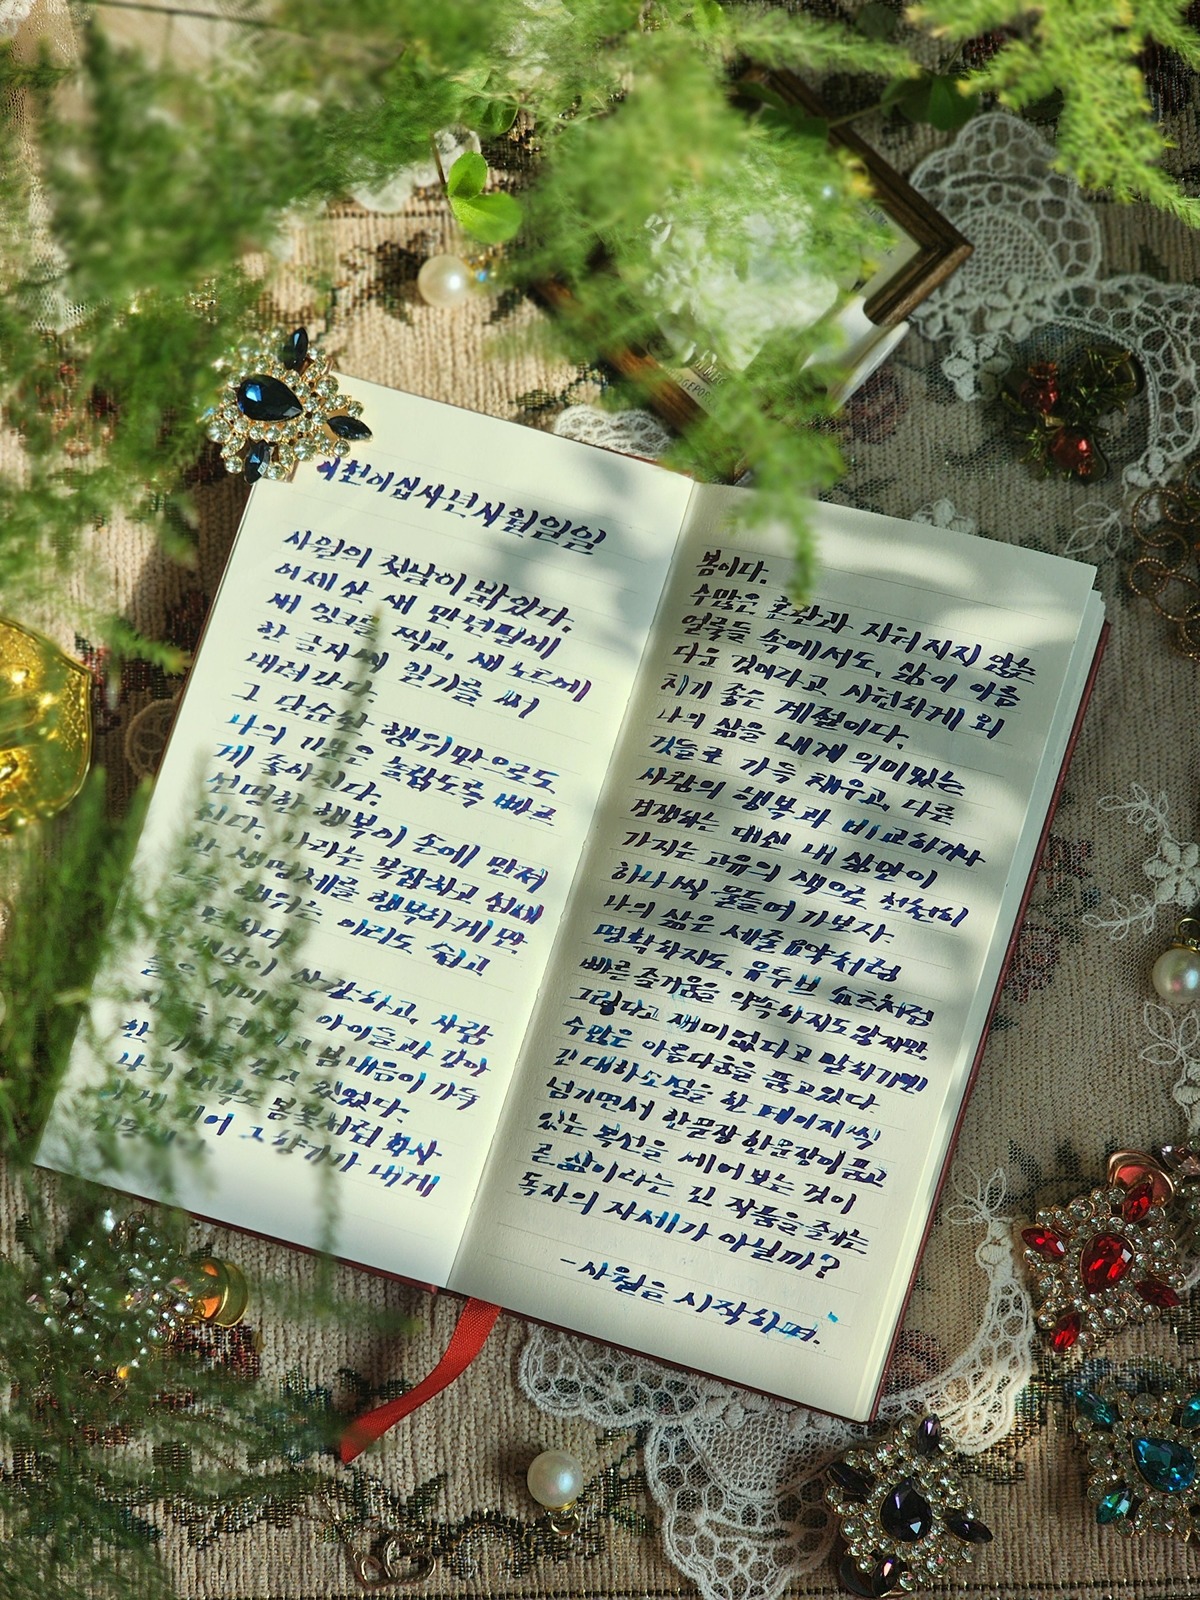 이천이십사년사월일일
사월의 첫날이 밝았다.
어제 산 새 만년필에
써 잉크를 찍고, 새 노트에
한 글자씩 일기를 써
내려간다.
그 단순한 행위만으로도
나의 기분은 놀랍도록 빠르
게 좋아진다.
선명한 행복이 손에 만져
진다. 나라는 복잡하고 섬세
한 생명체를 행복하게 만
행위는 이리도 쉽고
세상이 산란하고, 사람
아이들과 강아
한 봄내음이 가득
나의 행복도 봄꽃처럼 화사
하게 피어 그 향기가 내게
봄이다.
수많은 혼란과 지워지지 않는
얼룩들 속에서도, 삶이 아름
다운 것이라고 시원하게 외
치기 좋은 계절이다.
나의 삶을 내게 의미있는
것들로 가득 채우고, 다른
사람의 행복과 비교하거나
경쟁하는 대신 내 삶만이
가지는 고유의 색으로 천천히
하나씩 물들여 가보자.
나의 삶은 세줄 요약처럼
명확하지도, 유투브 쇼츠처럼
빠른 즐거움을 약속하지도 않지만.
그렇다고 재미없다고 말하기엔
수많은 아름다움을 품고있다.
긴 대하소설을 한 페이지씩
넘기면서 한문장 한문장이 품고
있는 복선을 세어 보는 것이
곧 삶이라는 긴 작품을 즐기는
독자의 자세가 아닐까?
- 사월을 시작하며.